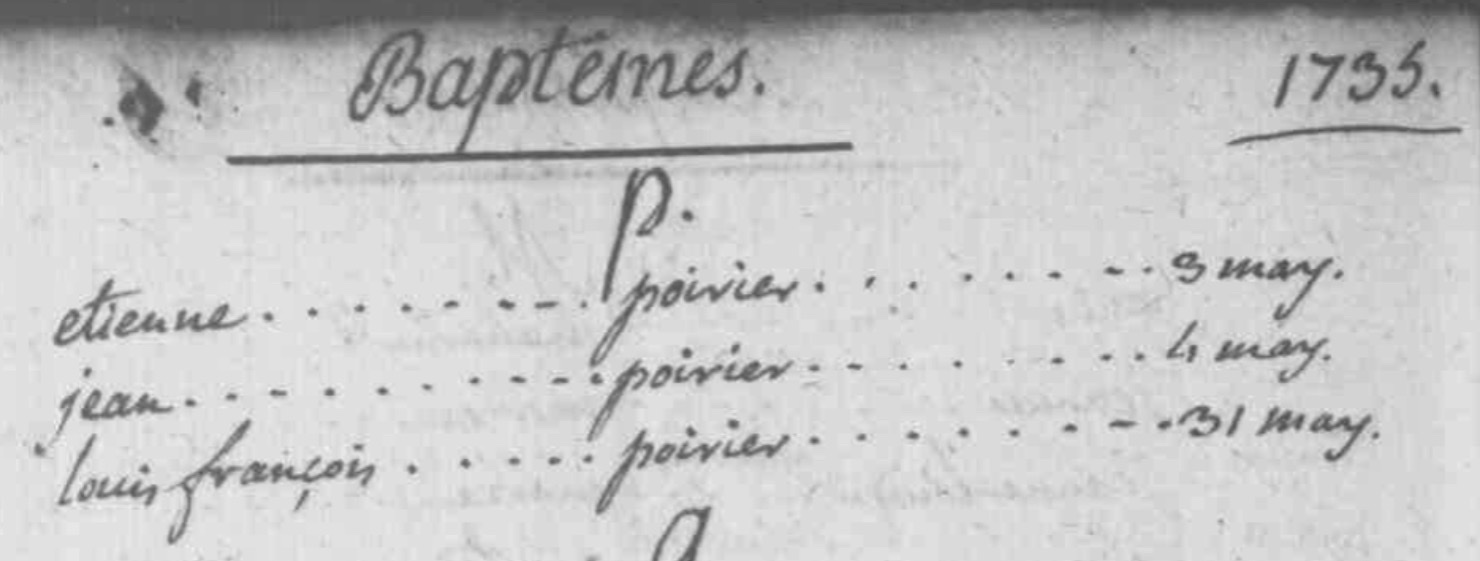 Baptêmes. 1735.
P.
etienne . . . . . . - - . poirier . . . . . - - . . 3 may.
jean . . . . . . . - - - . poirier . . . . . . . . . 4 may.
louis françois . . . . . . poirier . . . . . . . - - . 31 may.